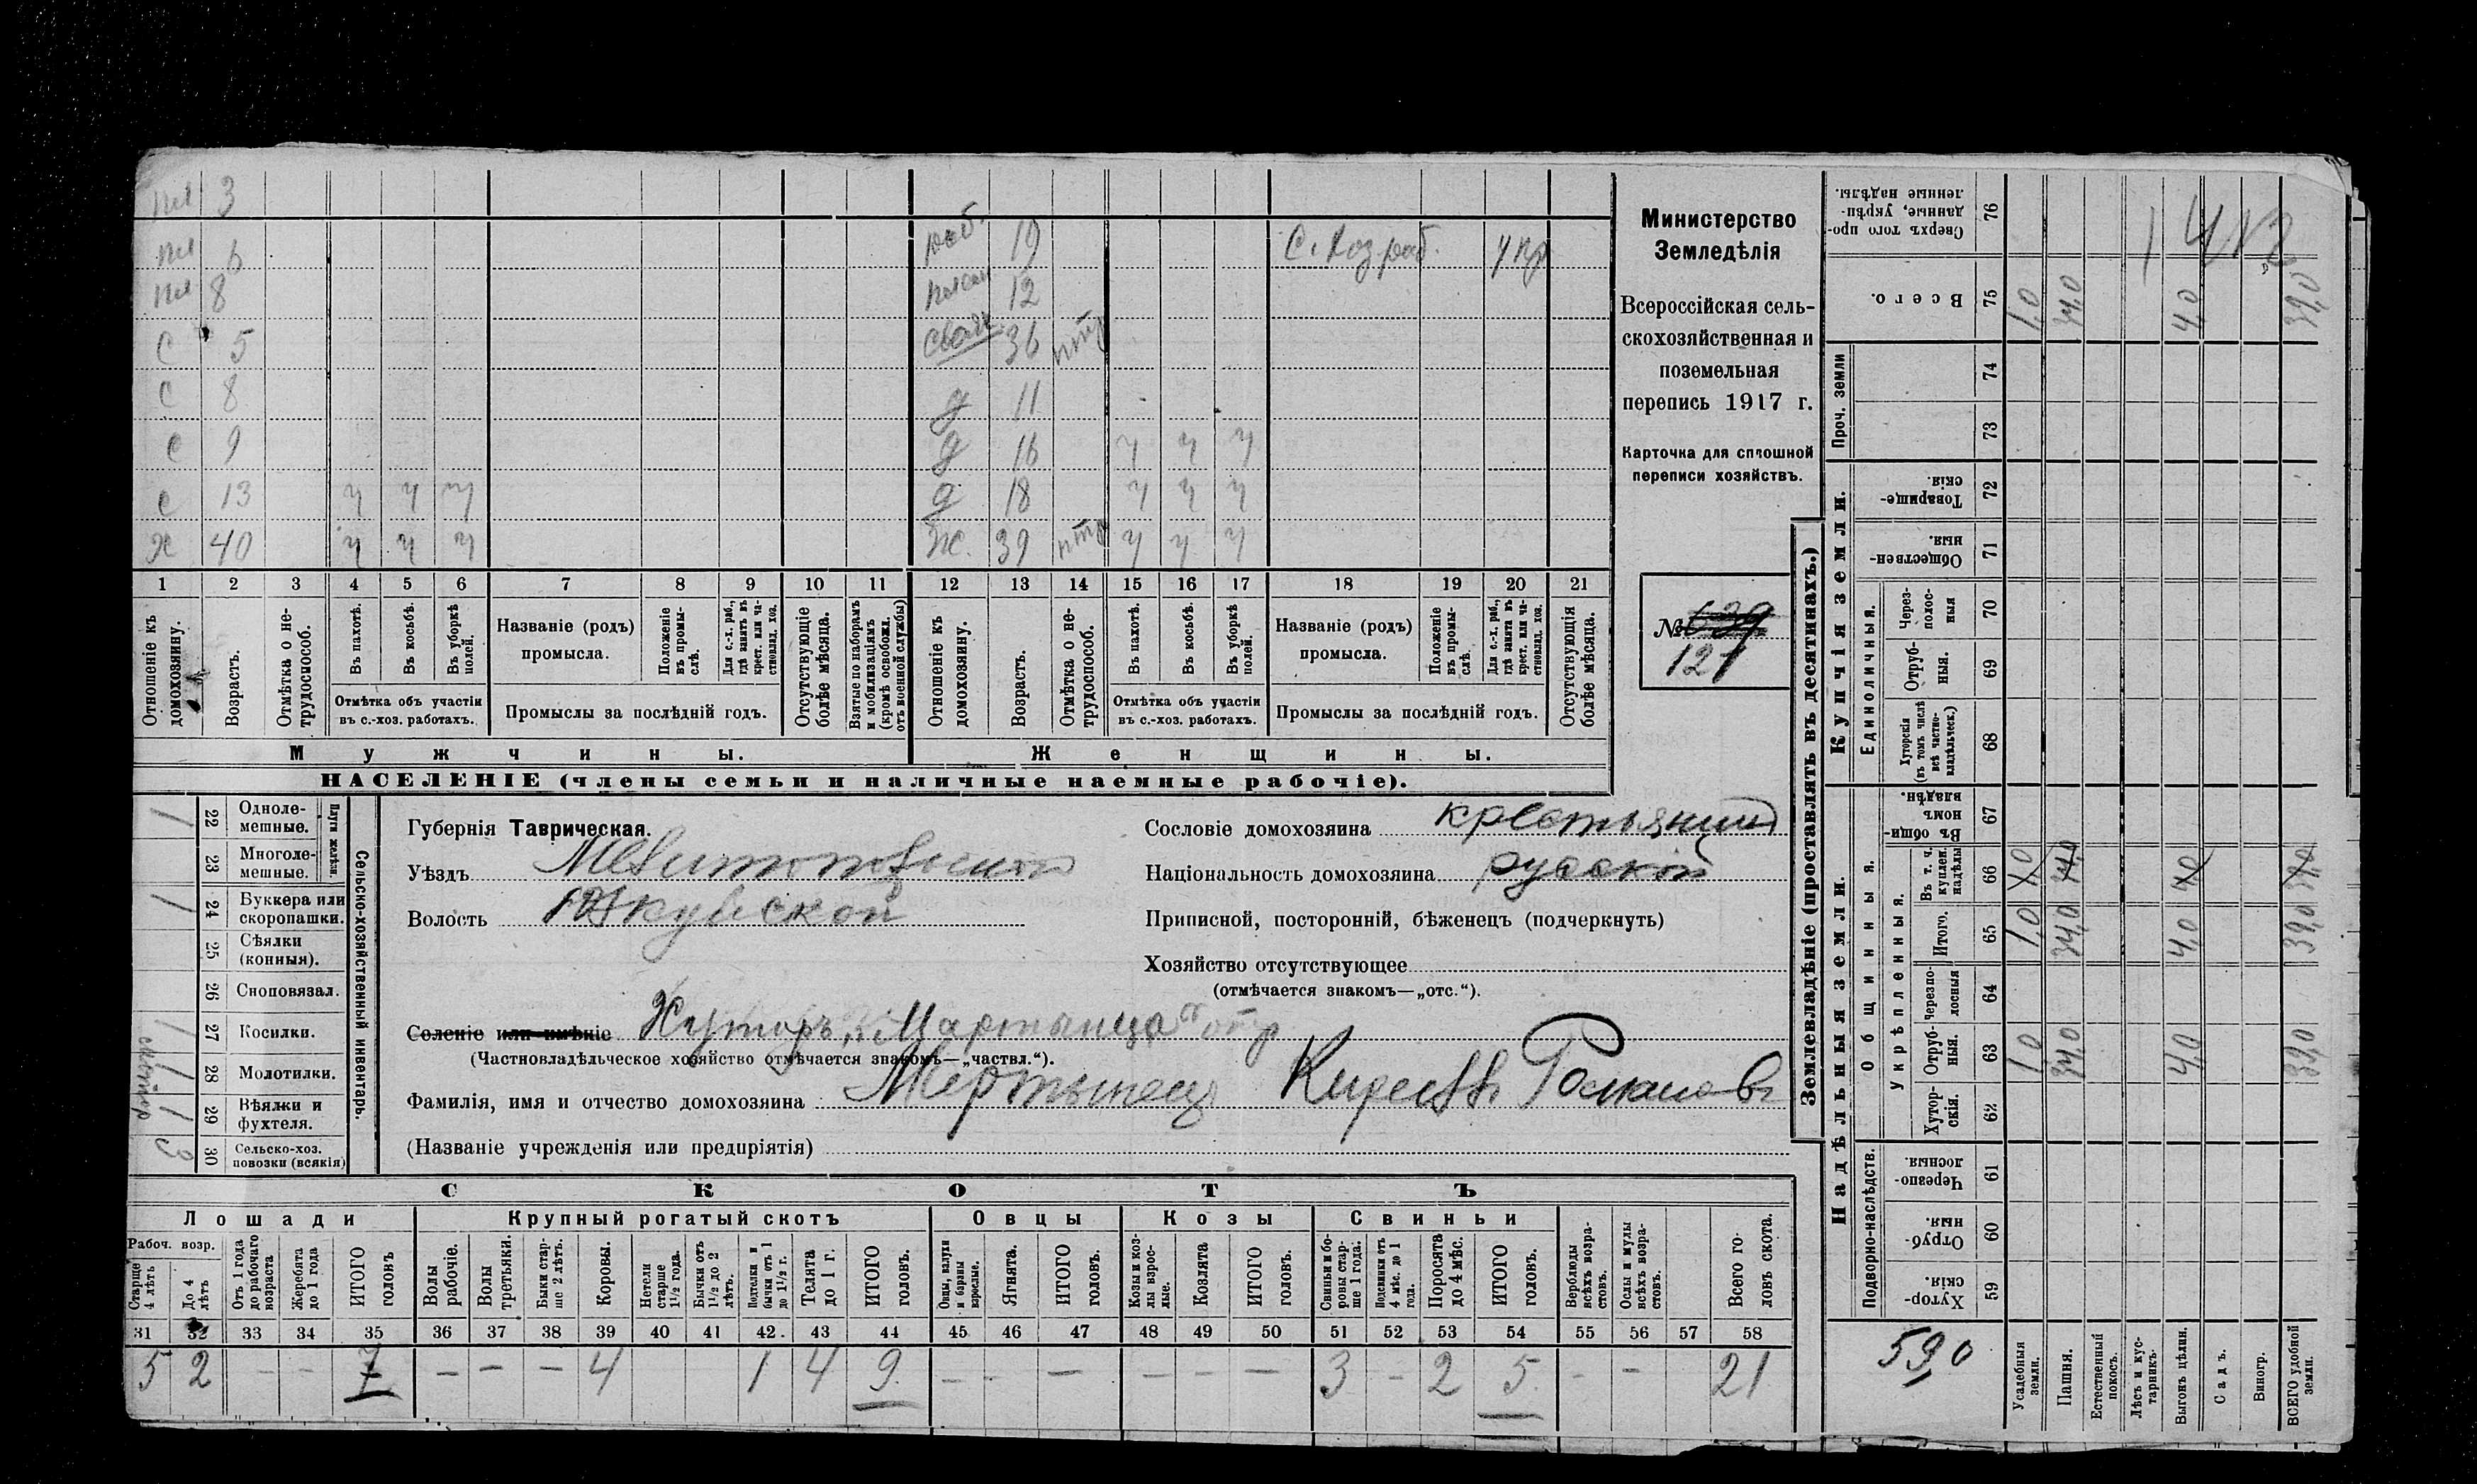 пл 3
пл 6
пл 8
С 5
С 8
С 9
С 13 ч ч ч
Х 40 ч ч ч
раб. 19 С. Хоз раб. у кр
племян 12
свояч. 36 нтр
д 11
д 16 ч ч ч
д 18 ч ч ч
ж. 39 нтр ч ч ч
1 2 3 4 5 6 7 8 9 10 11 12 13 14 15 16 17 18 19 20 21
Отношеніе къ домохозяину.
Возрастъ.
Отмѣтка о не-
трудоспособ.
Въ пахотѣ.
Въ косьбѣ.
Въ уборкѣ полей.
Отмѣтка объ участіи
въ с.-хоз. работахъ.
Названіе (родъ)
промысла.
Положеніе въ промы-
слѣ.
Для с.-х. раб., гдѣ занятъ въ крест. или ча-
стновлад. хоз.
Промыслы за послѣдній годъ.
Отсутствующіе болѣе мѣсяца.
Взятые по наборамъ и мобилизаціямъ (кромѣ освобожд. отъ военной службы)
Отношеніе къ домохозяину.
Возрастъ.
Отмѣтка о не-
трудоспособ.
Въ пахотѣ.
Въ косьбѣ.
Въ уборкѣ полей.
Отмѣтка объ участіи
въ с.-хоз. работахъ.
Названіе (родъ)
промысла.
Положеніе въ промы-
слѣ.
Для с.-х. раб., гдѣ занята въ крест. или ча-
стновлад. хоз.
Промыслы за послѣдній годъ.
Отсутствующія болѣе мѣсяца.
Мужчины.
Женщины.
НАСЕЛЕНІЕ (члены семьи и наличные наемные рабочіе).
Министерство
Земледѣлія
Всероссійская сель-
скохозяйственная и
поземельная
перепись 1917 г.
Карточка для сплошной
переписи хозяйствъ.
№ 639
121
Сельско-хозяйственный инвентарь.
Плуги желѣзн.
1 22 Однолемешные.
23 Многолемешные.
1 24 Буккера или скоропашки.
25 Сѣялки (конныя).
26 Сноповязал.
1 27 Косилки.
1 28 Молотилки.
1 29 Вѣялки и фухтеля.
3 30 Сельско-хоз. повозки (всякія)
Губернія Таврическая.
Уѣздъ Мелитопольскій
Волость
Селеніе или имѣніе Хуторъ „Мартынца"
(Частновладѣльческое хозяйство отмѣчается знакомъ—„частвл.“).
Фамилія, имя и отчество домохозяина Мартынецъ Кириллъ Романовъ
(Названіе учрежденія или предпріятія)
Сословіе домохозяина крестьянинъ
Національность домохозяина русской
Приписной, посторонній, бѣженецъ (подчеркнуть)
Хозяйство отсутствующее
(отмѣчается знакомъ—„отс.“).
СКОТЪ
Лошади
Крупный рогатый скотъ
Овцы
Козы
Свиньи
Рабоч. возр.
Старше 4 лѣтъ
До 4 лѣтъ
Отъ 1 года до рабочаго возраста
Жеребята до 1 года
ИТОГО головъ
Волы рабочіе.
Волы третьяки.
Быки стар-
ше 2 лѣтъ.
Коровы.
Нетели старше 1½ года.
Бычки отъ 1½ до 2 лѣтъ.
Подтелки и бычки отъ 1 до 1½ г.
Телята до 1 г.
ИТОГО головъ.
Овцы, валухи и бараны взрослые.
Ягнята.
ИТОГО головъ.
Козы и коз-
лы взрос-
лые.
Козлята
ИТОГО головъ.
Свиньи и бо-
ровы стар-
ше 1 года.
Подсвинки отъ 4 мѣс. до 1 года.
Поросята до 4 мѣс.
ИТОГО головъ.
Верблюды всѣхъ возра-
стовъ.
Ослы и мулы всѣхъ возра-
стовъ.
Всего го-
ловъ скота.
31 32 33 34 35 36 37 38 39 40 41 42. 43 44 45 46 47 48 49 50 51 52 53 54 55 56 57 58
5 2 – – 7 – – – 4 1 4 9 – – – – – – 3 – 2 5 – – 21
Землевладѣніе (проставлять въ десятинахъ.)
Купчія земли.
Надѣльныя земли.
Сверхъ того про-
данные, укрѣп-
ленные надѣлы. 76
Всего. 75 1,0 34,0 4,0 39,0
Проч. земли
74
73
Товарище-
скія. 72
Обществен-
ныя. 71
Единоличныя.
Через-
полос-
ныя 70
Отруб-
ныя. 69
Хуторскія (въ томъ числѣ всѣ частно-
владѣльческ.) 68
Общинныя.
Укрѣпленныя.
Въ общи-
номъ владѣн. 67
Въ т. ч. куплен. надѣлы 66 1,0 34,0 4,0 39,0
Итого. 65 1,0 34,0 4,0 39,0
Черезпо-
лосныя 64
Отруб-
ныя. 63 1,0 34,0 4,0 39,0
Хутор-
скія. 62
Подворно-наслѣдств.
Черезпо-
лосныя. 61
Отруб-
ныя. 60
Хутор-
скія 59
590
Усадебныя земли.
Пашня.
Естественный покосъ.
Лѣсъ и кус-
тарникъ.
Выгонъ цѣлин.
Садъ.
Виногр.
ВСЕГО удобной земли.